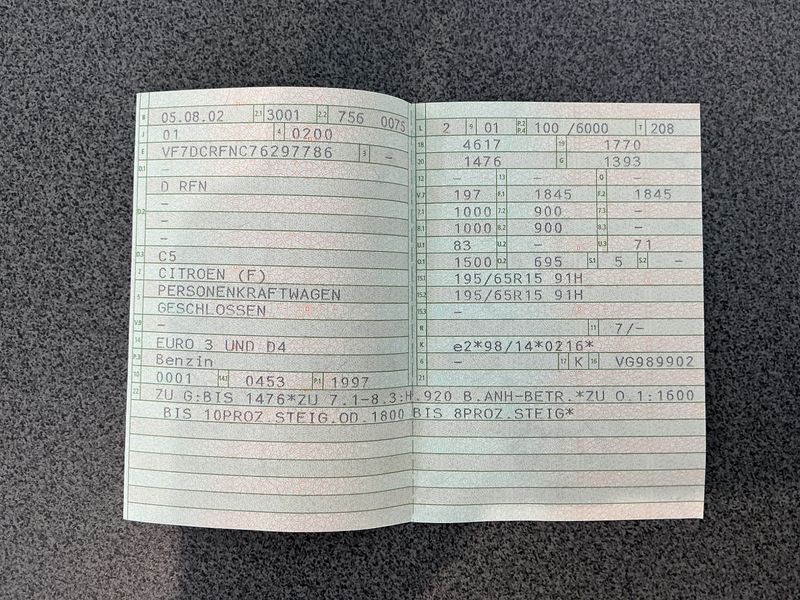 B 05.08.02 2.1 3001 2.2 756 0075
J 01 4 0200
E VF7DCRFNC76297786 3 –
D.1 –
D RFN
–
D.2 –
–
D.3 C5
2 CITROEN (F)
5 PERSONENKRAFTWAGEN
GESCHLOSSEN
V.9 –
14 EURO 3 UND D4
P.3 Benzin
10 0001 14.1 0453 P.1 1997
L 2 9 01 P.2 P.4 100 /6000 T 208
18 4617 19 1770
20 1476 G 1393
12 – 13 – Q –
V.7 197 F.1 1845 F.2 1845
7.1 1000 7.2 900 7.3 –
8.1 1000 8.2 900 8.3 –
U.1 83 U.2 – U.3 71
O.1 1500 O.2 695 S.1 5 S.2 –
15.1 195/65R15 91H
15.2 195/65R15 91H
15.3 –
R 11 7/–
K e2*98/14*0216*
6 – 17 K 16 VG989902
21
22 ZU G:BIS 1476*ZU 7.1-8.3:H.920 B.ANH-BETR.*ZU O.1:1600
BIS 10PROZ.STEIG.OD.1800 BIS 8PROZ.STEIG*